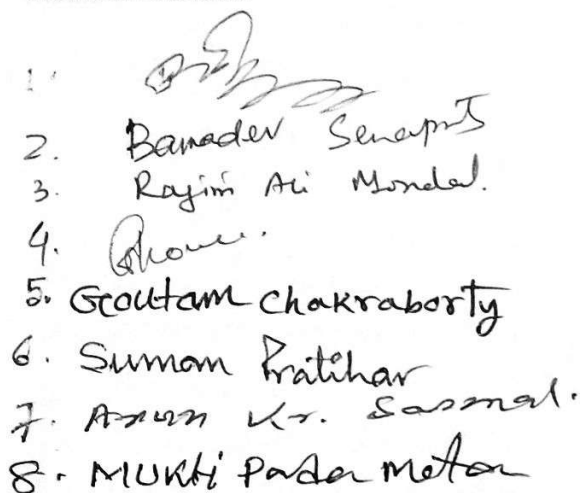 1.
2. Bamadev Senapati
3. Rajim Ali Mondal.
4.
5. Goutam Chakraborty
6. Suman Pratihar
7. Arun Kr. Sasmal.
8. MUKti Pada Metar